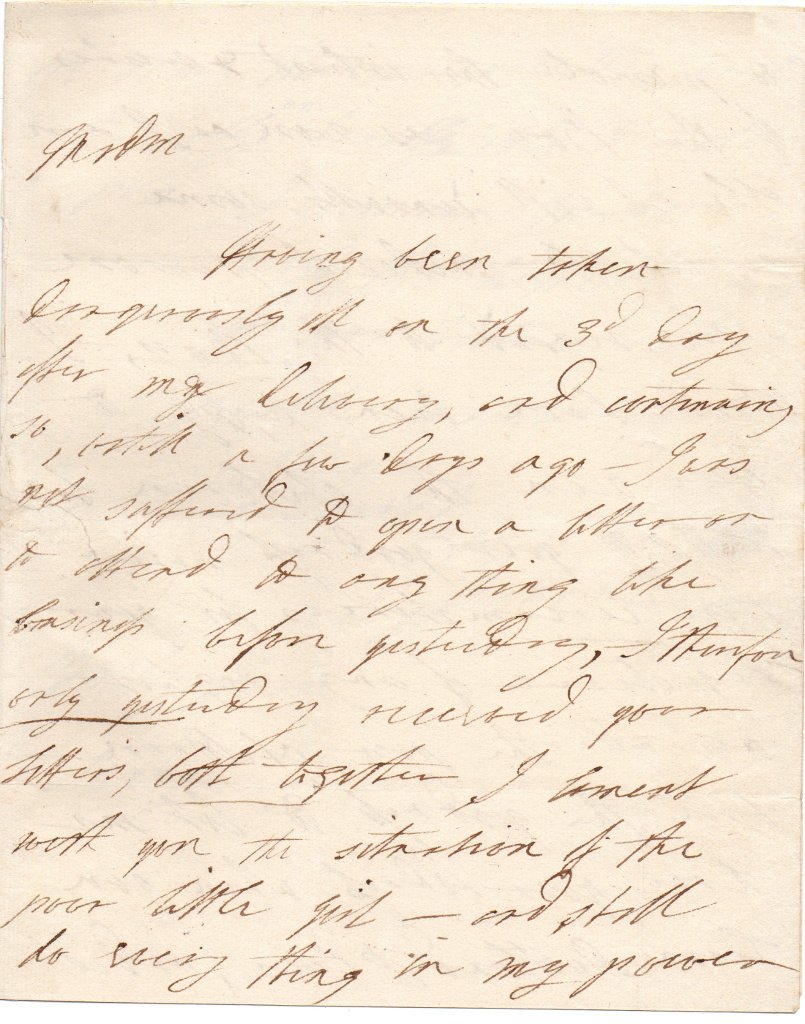 Madm
Having been taken
dangerously ill on the 3d day
after my delivery, and continuing
so, untill a few days ago - I was
not suffered to open a letter or
to attend to any thing like
business before yesterday, I therefore
only yesterday received your
letters, both together I lament
with you the situation of the
poor little girl - and shall
do every thing in my power